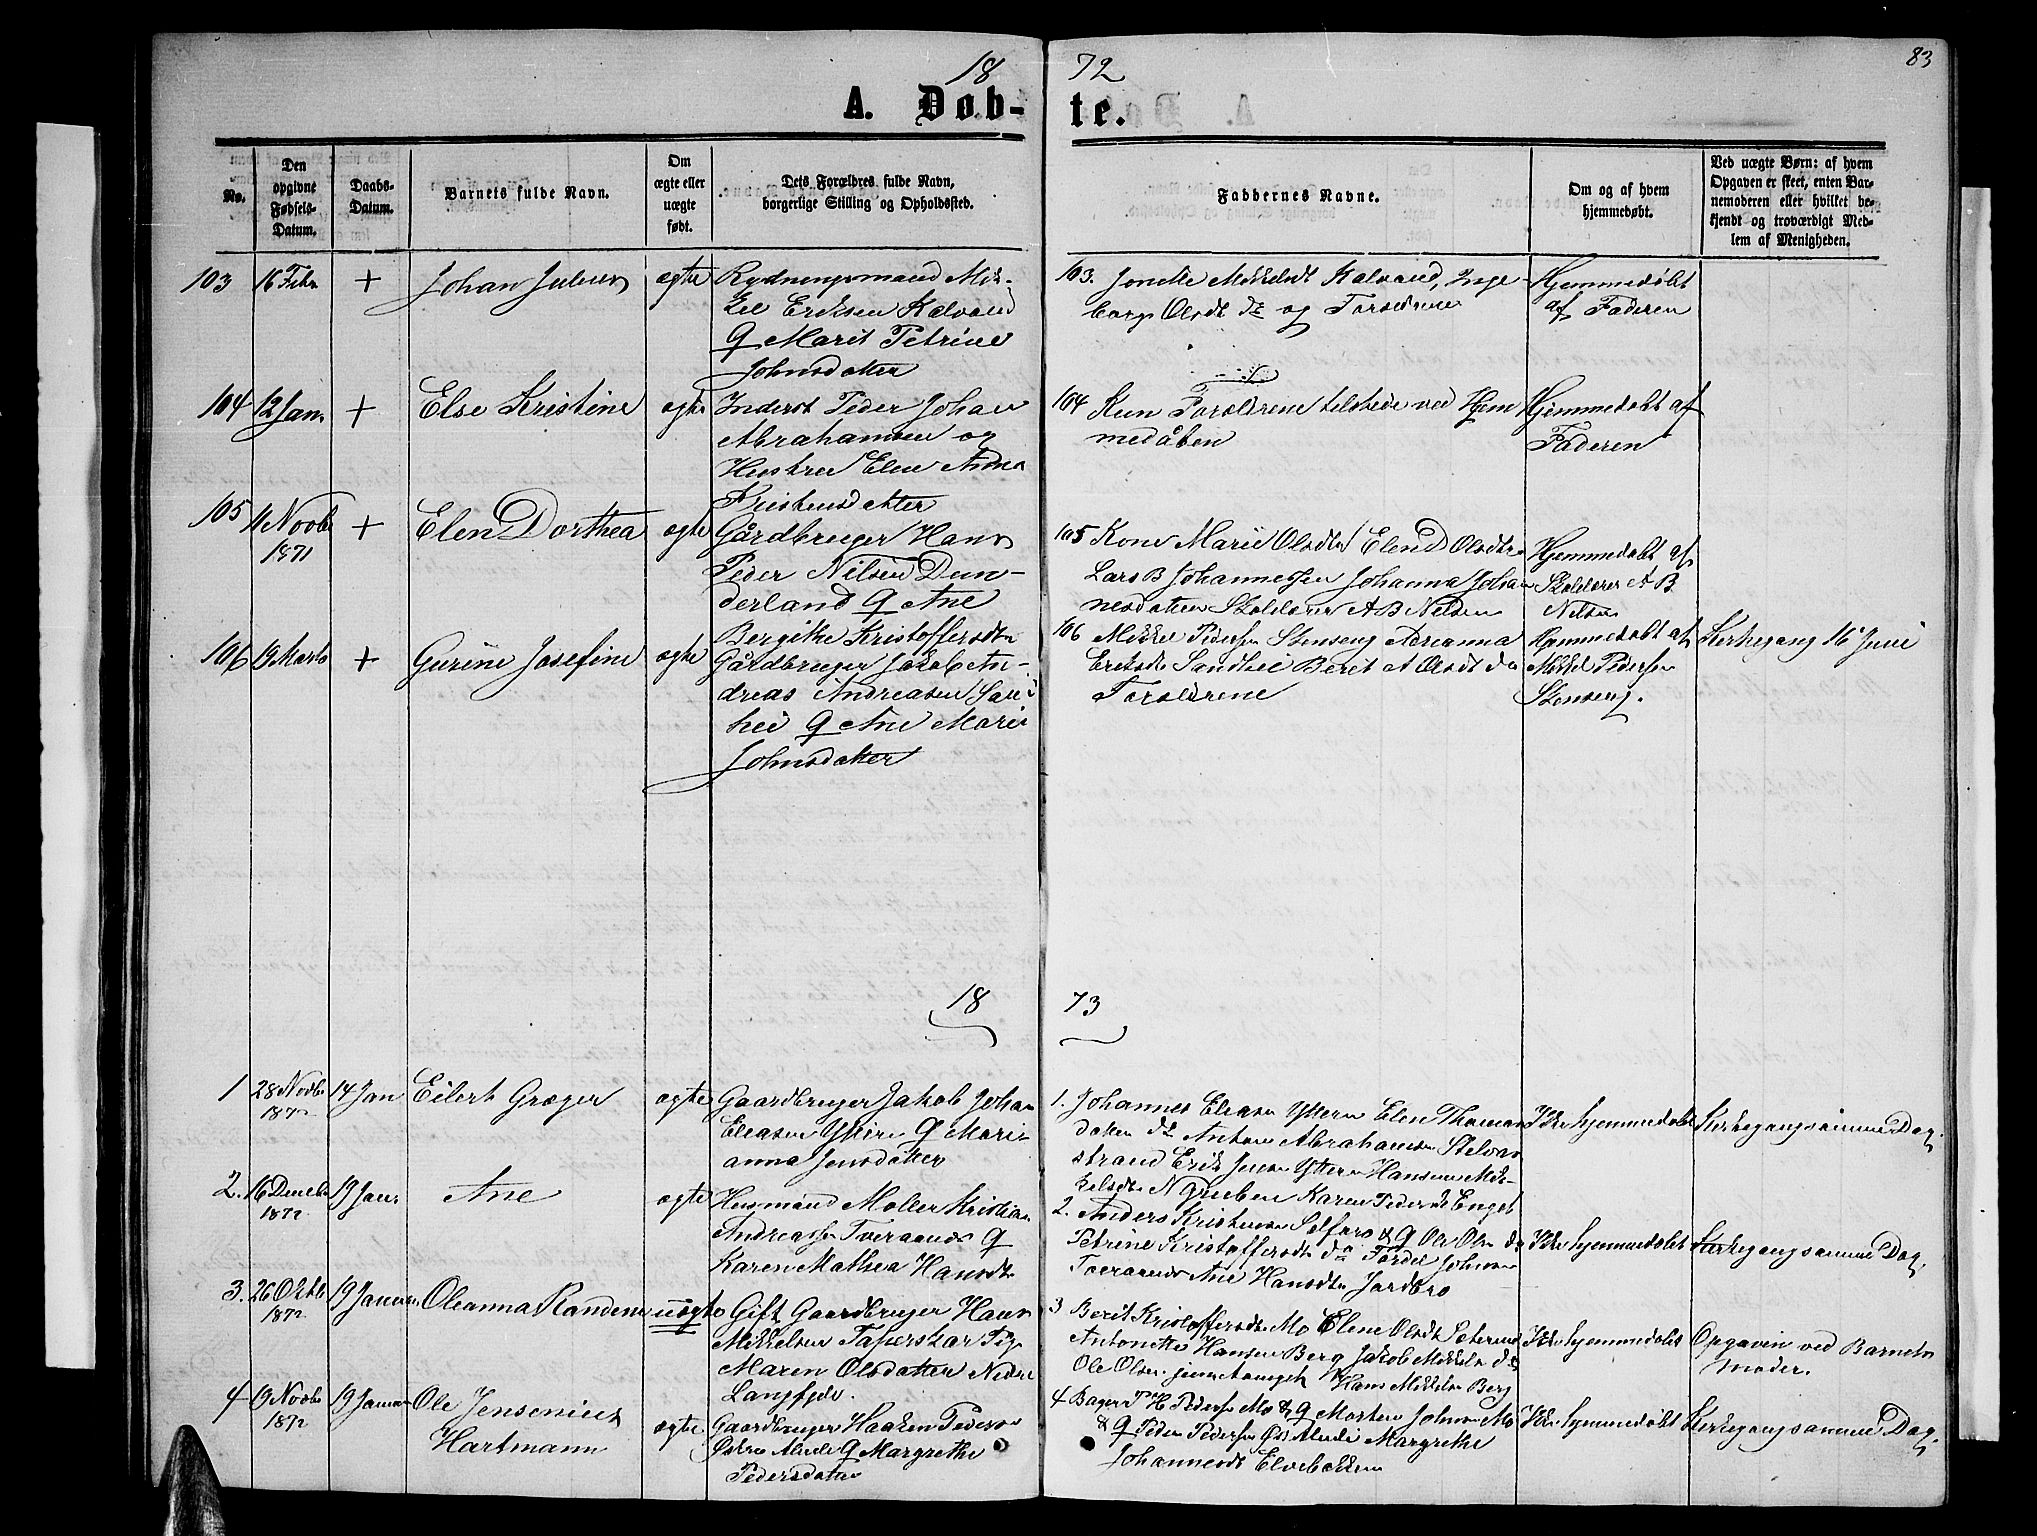 18 72
83
A. Døb- te.
No.
Den
opgivne
Fødsels-
Datum.
Daabs-
Datum.
Barnets fulde Navn.
Om
ægte eller
uægte
født.
Dets Forældres fulde Navn,
borgerlige Stilling og Opholdssted.
Faddernes Navne.
Om og af hvem
hjemmedøbt.
Ved uægte Børn: af hvem
Opgaven er skeet, enten Bar-
nemoderen eller hvilket be-
kjendt og troværdigt Med-
lem af Menigheden.
103 16 Febr + Johan Julius ægte Rydningsmand Mik-
kel Eriksen Kalvand
& Marit Petrine
Johnsdatter
103. Jonette Mikkelsdt Kalvand, Inge-
borg Olsdt do og Forældrene
Hjemmedøbt
af Faderen
104 12 Jan + Else Kristine ægte Inderst Peder Johan
Abrahamsen og
Hustru Elen Anna
Kristensdatter
104 Kun Forældrene tilstede ved Hjem
medåben
Hjemmedøbt af
Faderen
105 11 Novbr
1871 + Elen Dorthea ægte Gårdbruger Hans
Peder Nilsen Dun-
derland & Ane
Bergitte Kristoffersdtr
105 Kone Marie Olsdtr Elen D Olsdtr
Lars B Johannessen Johanna Johan
nesdatter Skolelærer A B Nilsen
Hjemmedøbt af
Skolelærer A B
Nilsen
106 19 Marts + Gurine Josefine ægte Gårdbruger Jakob An-
dreas Andreasen
& Ane Marie
Johnsdatter
106 Mikkel Pedersen Stenseng Adrianna
Eriksdt Sandhei Beret A Olsdt do
Forældrene
Hjemmedøbt af
Mikkel Pedersen
Stenseng.
Kirkegang 16 Juni
18 73
1 28 Novbr
1872 14 Jan Eilert Græger ægte Gaardbruger Jakob Johan
Eleasen Ytteren & Mari-
anna Jensdatter
1. Johannes Eleasen Ytteren Elen Thomas
datter do Anton Abrahamsen Stelvs
strand Erik Jensen Ytteren Hansine Mik-
kelsdtr Ngruben
Ikke hjemmedøbt
Kirkegang samme Dag.
2. 16 Decbr
1872 19 Jan. Ane ægte Husmand Møller Kristian
Andreassen Tveraanes &
Karen Mathea Hansdtr
2. Anders Kristensen Selfors & & Ole Olsen do
Petrine Kristoffersdtr do Peder Johnsen
Tveraanes Ane Hansdtr Jordbro
Ikke hjemmedøbt
Kirkegang samme Dag.
3. 26 Oktbr
1872 19 Januar Oleanna Randine uægte Gift Gaardbruger Hans
Mikkelsen Tapeskar Pig
Maren Olsdatter Nedre
Langfjeld.
3 Berit Kristoffersdtr Mo Elene Olsdt
Antonette Hansen Berg Jakob Mikkelsen do
Ole Olsen Hans Mikkelsen Berg
Ikke hjemmedøbt
Opgaven ved Barnets
Moder.
4 9 Novbr
1872 19 Januar Ole Jensenius
Hartmann ægte Gaardbruger Haaken Pedersen
Østre Alteli & Margrethe
Pedersdatter
4 Bager P H Pedersen Mo & & Morten Johnsen Mo
& & Peder Pedersen Ø Alteli Margrethe
Johannesdt Elvebakken
Ikke hjemmedøbt
Kirkegang samme Dag.